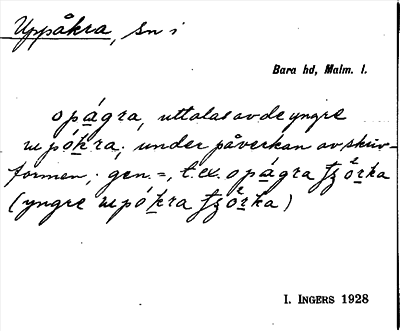 Uppåkra, sn i
Bara hd, Malm. l.
opágra, uttalas av de yngre
upókra, under påverkan av skriv-
formen; gen. =, t. ex. opágra
(yngre upókra
I. INGERS 1928